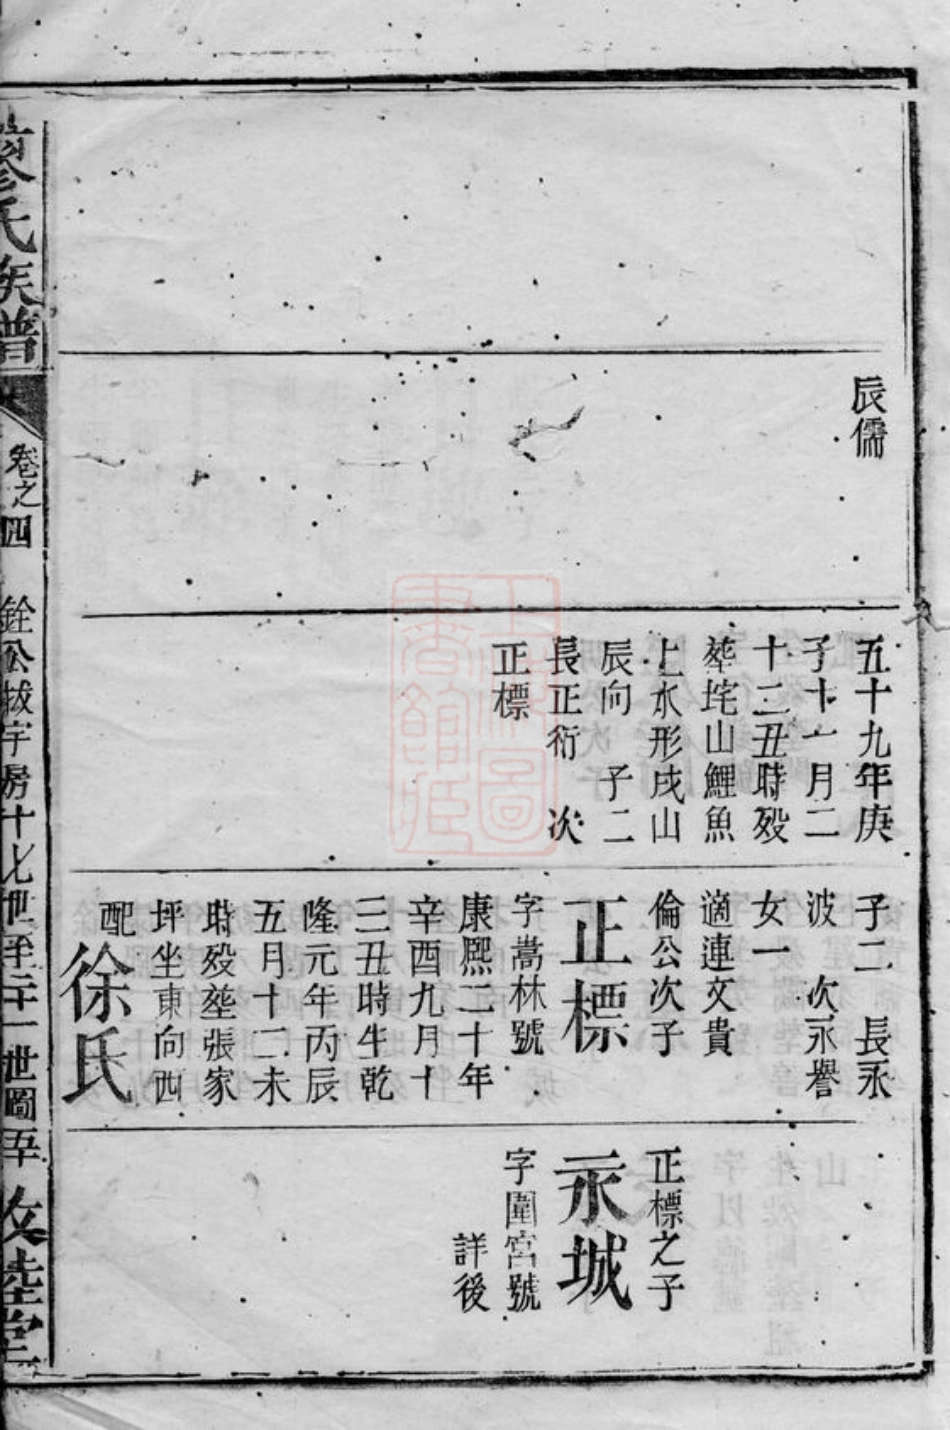 辰儒
五十九年庚
子十一月二
十二丑時殁
葬垞山鯉魚
上水形戌山
辰向 子二
長正衍 次
正標
子二 長永
波 次永譽
女一
適連文貴
倫公次子
正標
字嵩林號
康熙二十年
辛酉九月十
三丑時生乾
隆元年丙辰
五月十二未
時殁塟張家
坪坐東向西
配
徐氏
正標之子
永城
字圍宮號
詳後
廖氏族譜
卷之四
銓公拔宇房十七世至二十一世圖
五十
敦睦堂